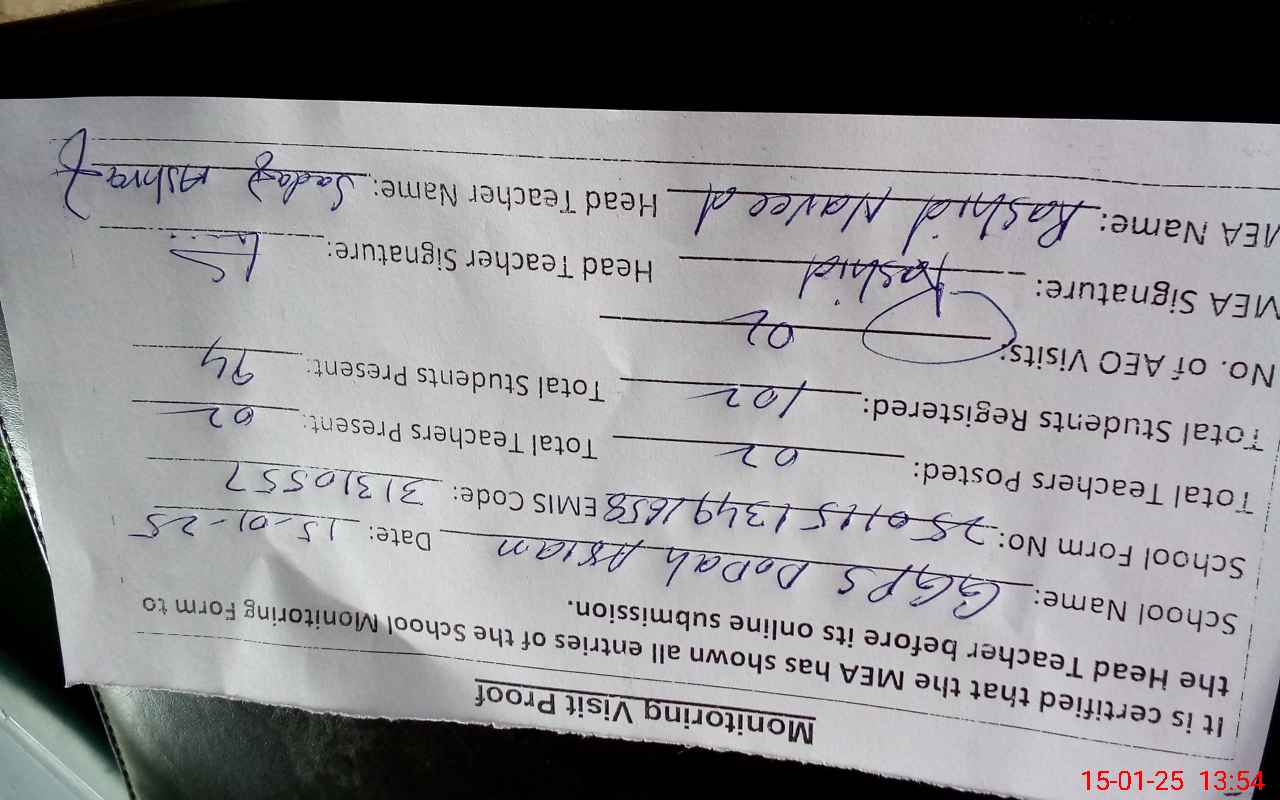 Monitoring Visit Proof
It is certified that the MEA has shown all entries of the School Monitoring Form to
the Head Teacher before its online submission.
School Name: GGPS DoDah Aslam Date: 15-01-25
School Form No: 25011513491658 EMIS Code: 31310557
Total Teachers Posted: 02 Total Teachers Present: 02
Total Students Registered: 102 Total Students Present: 94
No. of AEO Visits: 02
MEA Signature: Rashid Head Teacher Signature:
MEA Name: Rashid Naveed Head Teacher Name: Sadaf Ashraf
15-01-25 13:54